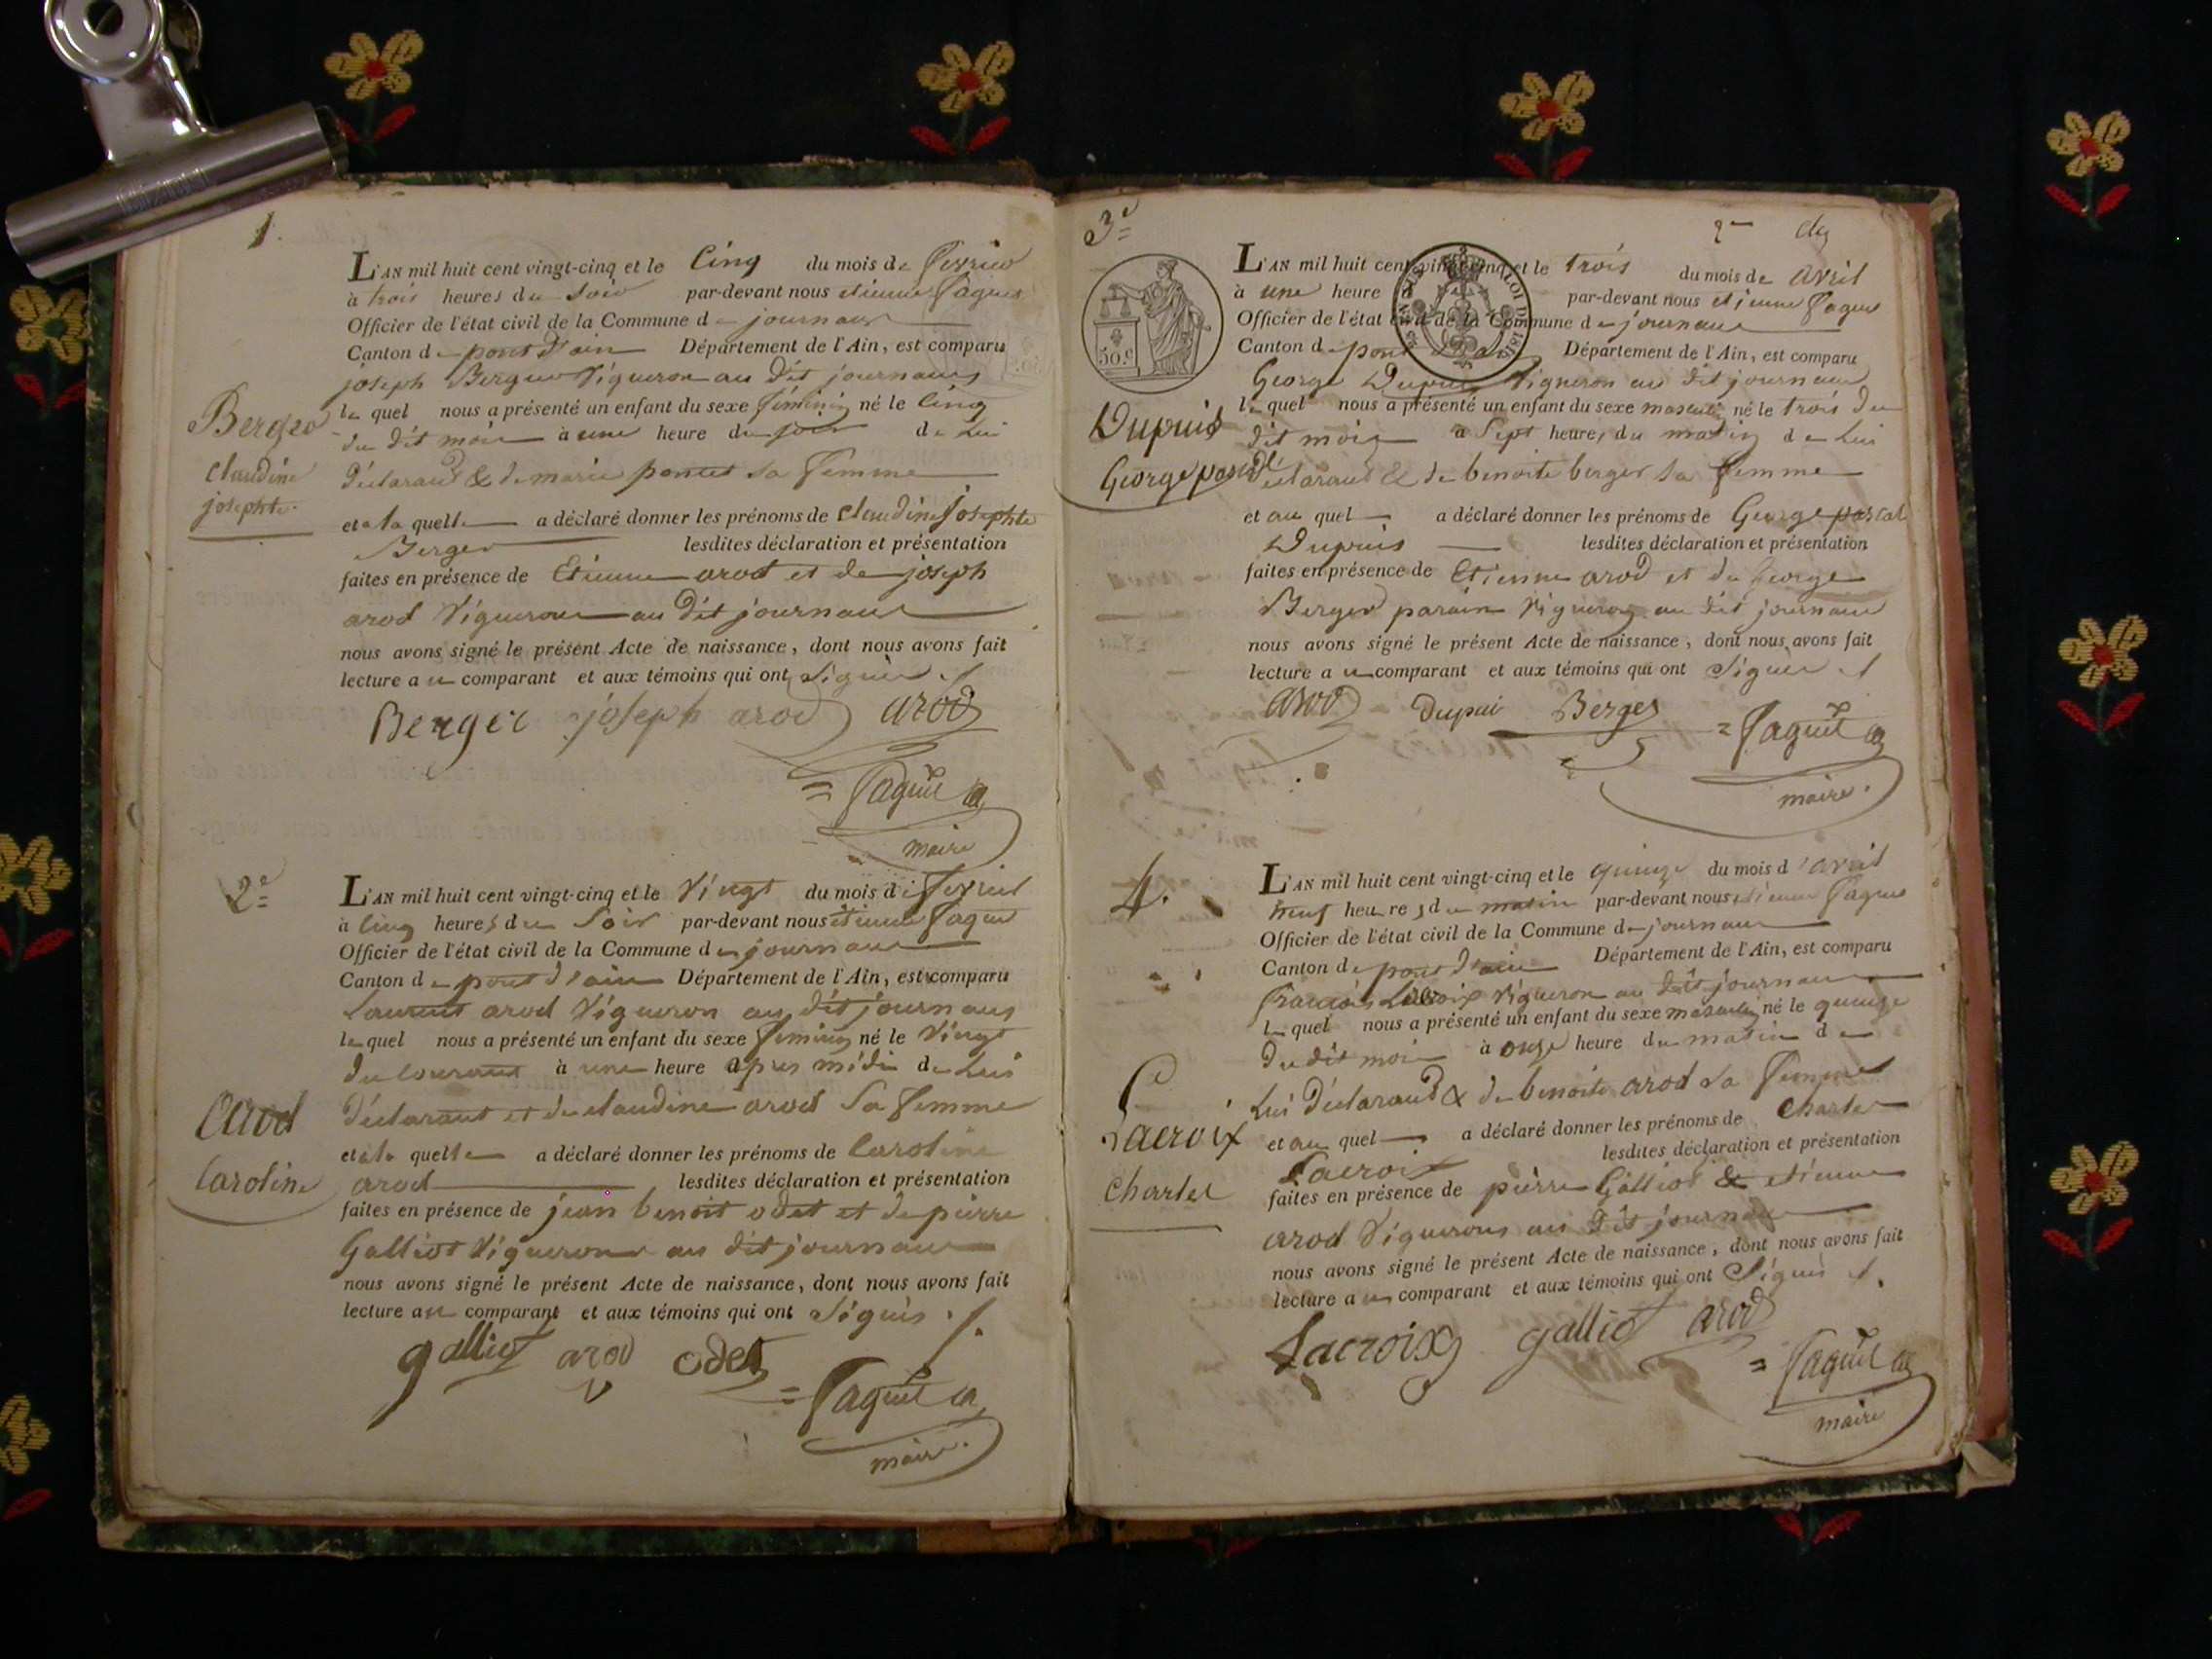 1.
L'AN mil huit cent vingt-cinq et le Cinq du mois de fevrier
à trois heures du Soir par-devant nous etienne
Officier de l'état civil de la Commune de journans
Canton de pont d'ain Département de l'Ain, est comparu
joseph Berger Vigneron au dit journans
le quel nous a présenté un enfant du sexe feminin né le Cinq
du dit mois à une heure du jour de Lui
déclarant & de marie sa femme
et a la quelle a déclaré donner les prénoms de Claudine josephte
Berger lesdites déclaration et présentation
faites en présence de Etienne arod et de joseph
arod Vignerons au dit journans
nous avons signé le présent Acte de naissance, dont nous avons fait
lecture au comparant et aux témoins qui ont Signés ./
Berger
Claudine
josephte
Berger joseph arod arod
maire
2e
L'AN mil huit cent vingt-cinq et le Vingt du mois de fevrier
à Cinq heures du Soir par-devant nous etienne
Officier de l'état civil de la Commune de journans
Canton de pont d'ain Département de l'Ain, est comparu
Laurent arod Vigneron au dit journans
le quel nous a présenté un enfant du sexe feminin né le Vingt
du Courant à une heure apres midi de Lui
déclarant et de claudine arod Sa femme
et a la quelle a déclaré donner les prénoms de Caroline
arod lesdites déclaration et présentation
faites en présence de jean benoit odet et de pierre
Galliot Vignerons au dit journans
nous avons signé le présent Acte de naissance, dont nous avons fait
lecture au comparant et aux témoins qui ont Signés ./.
Arod
Caroline
galliot arod odet
maire
3e
2me
50.c
L'AN mil huit cent vingt-cinq et le trois du mois de avril
à une heure par-devant nous etienne
Officier de l'état civil de la Commune de journans
Canton de pont Département de l'Ain, est comparu
George Dupuis Vigneron au dit journans
le quel nous a présenté un enfant du sexe masculin né le trois du
dit mois à Sept heures du matin de Lui
déclarant & de benoite berger sa femme
et au quel a déclaré donner les prénoms de George pascal
Dupuis lesdites déclaration et présentation
faites en présence de Etienne arod et de George
Berger parain Vignerons au dit journans
nous avons signé le présent Acte de naissance, dont nous avons fait
lecture au comparant et aux témoins qui ont Signés ./
Dupuis
George pascal
arod Dupui Berger
maire.
4.
L'AN mil huit cent vingt-cinq et le quinze du mois d'avril
neuf heures du matin par-devant nous etienne
Officier de l'état civil de la Commune de journans
Canton de pont d'ain Département de l'Ain, est comparu
francois Lacroix Vigneron au dit journans
le quel nous a présenté un enfant du sexe masculin né le quinze
du dit mois à onze heure du matin de
Lui déclarant & de benoite arod sa femme
et au quel a déclaré donner les prénoms de Charles
Lacroix lesdites déclaration et présentation
faites en présence de pierre Galliot & etienne
arod Vignerons au dit journans
nous avons signé le présent Acte de naissance, dont nous avons fait
lecture au comparant et aux témoins qui ont Signés ./.
Lacroix
Charles
Lacroix galliot arod
maire